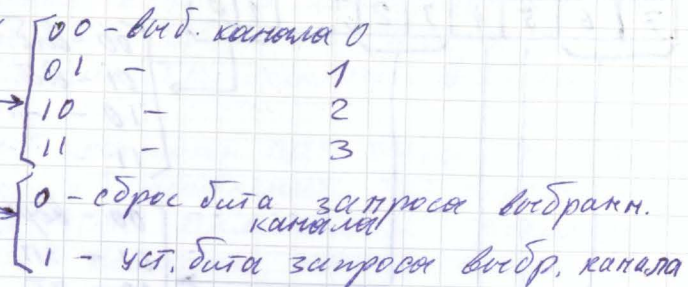 00 - выб. канала 0
01 - 1
10 - 2
11 - 3
0 - сброс бита запроса выбранн.
канала
1 - уст. бита запроса выбр. канала